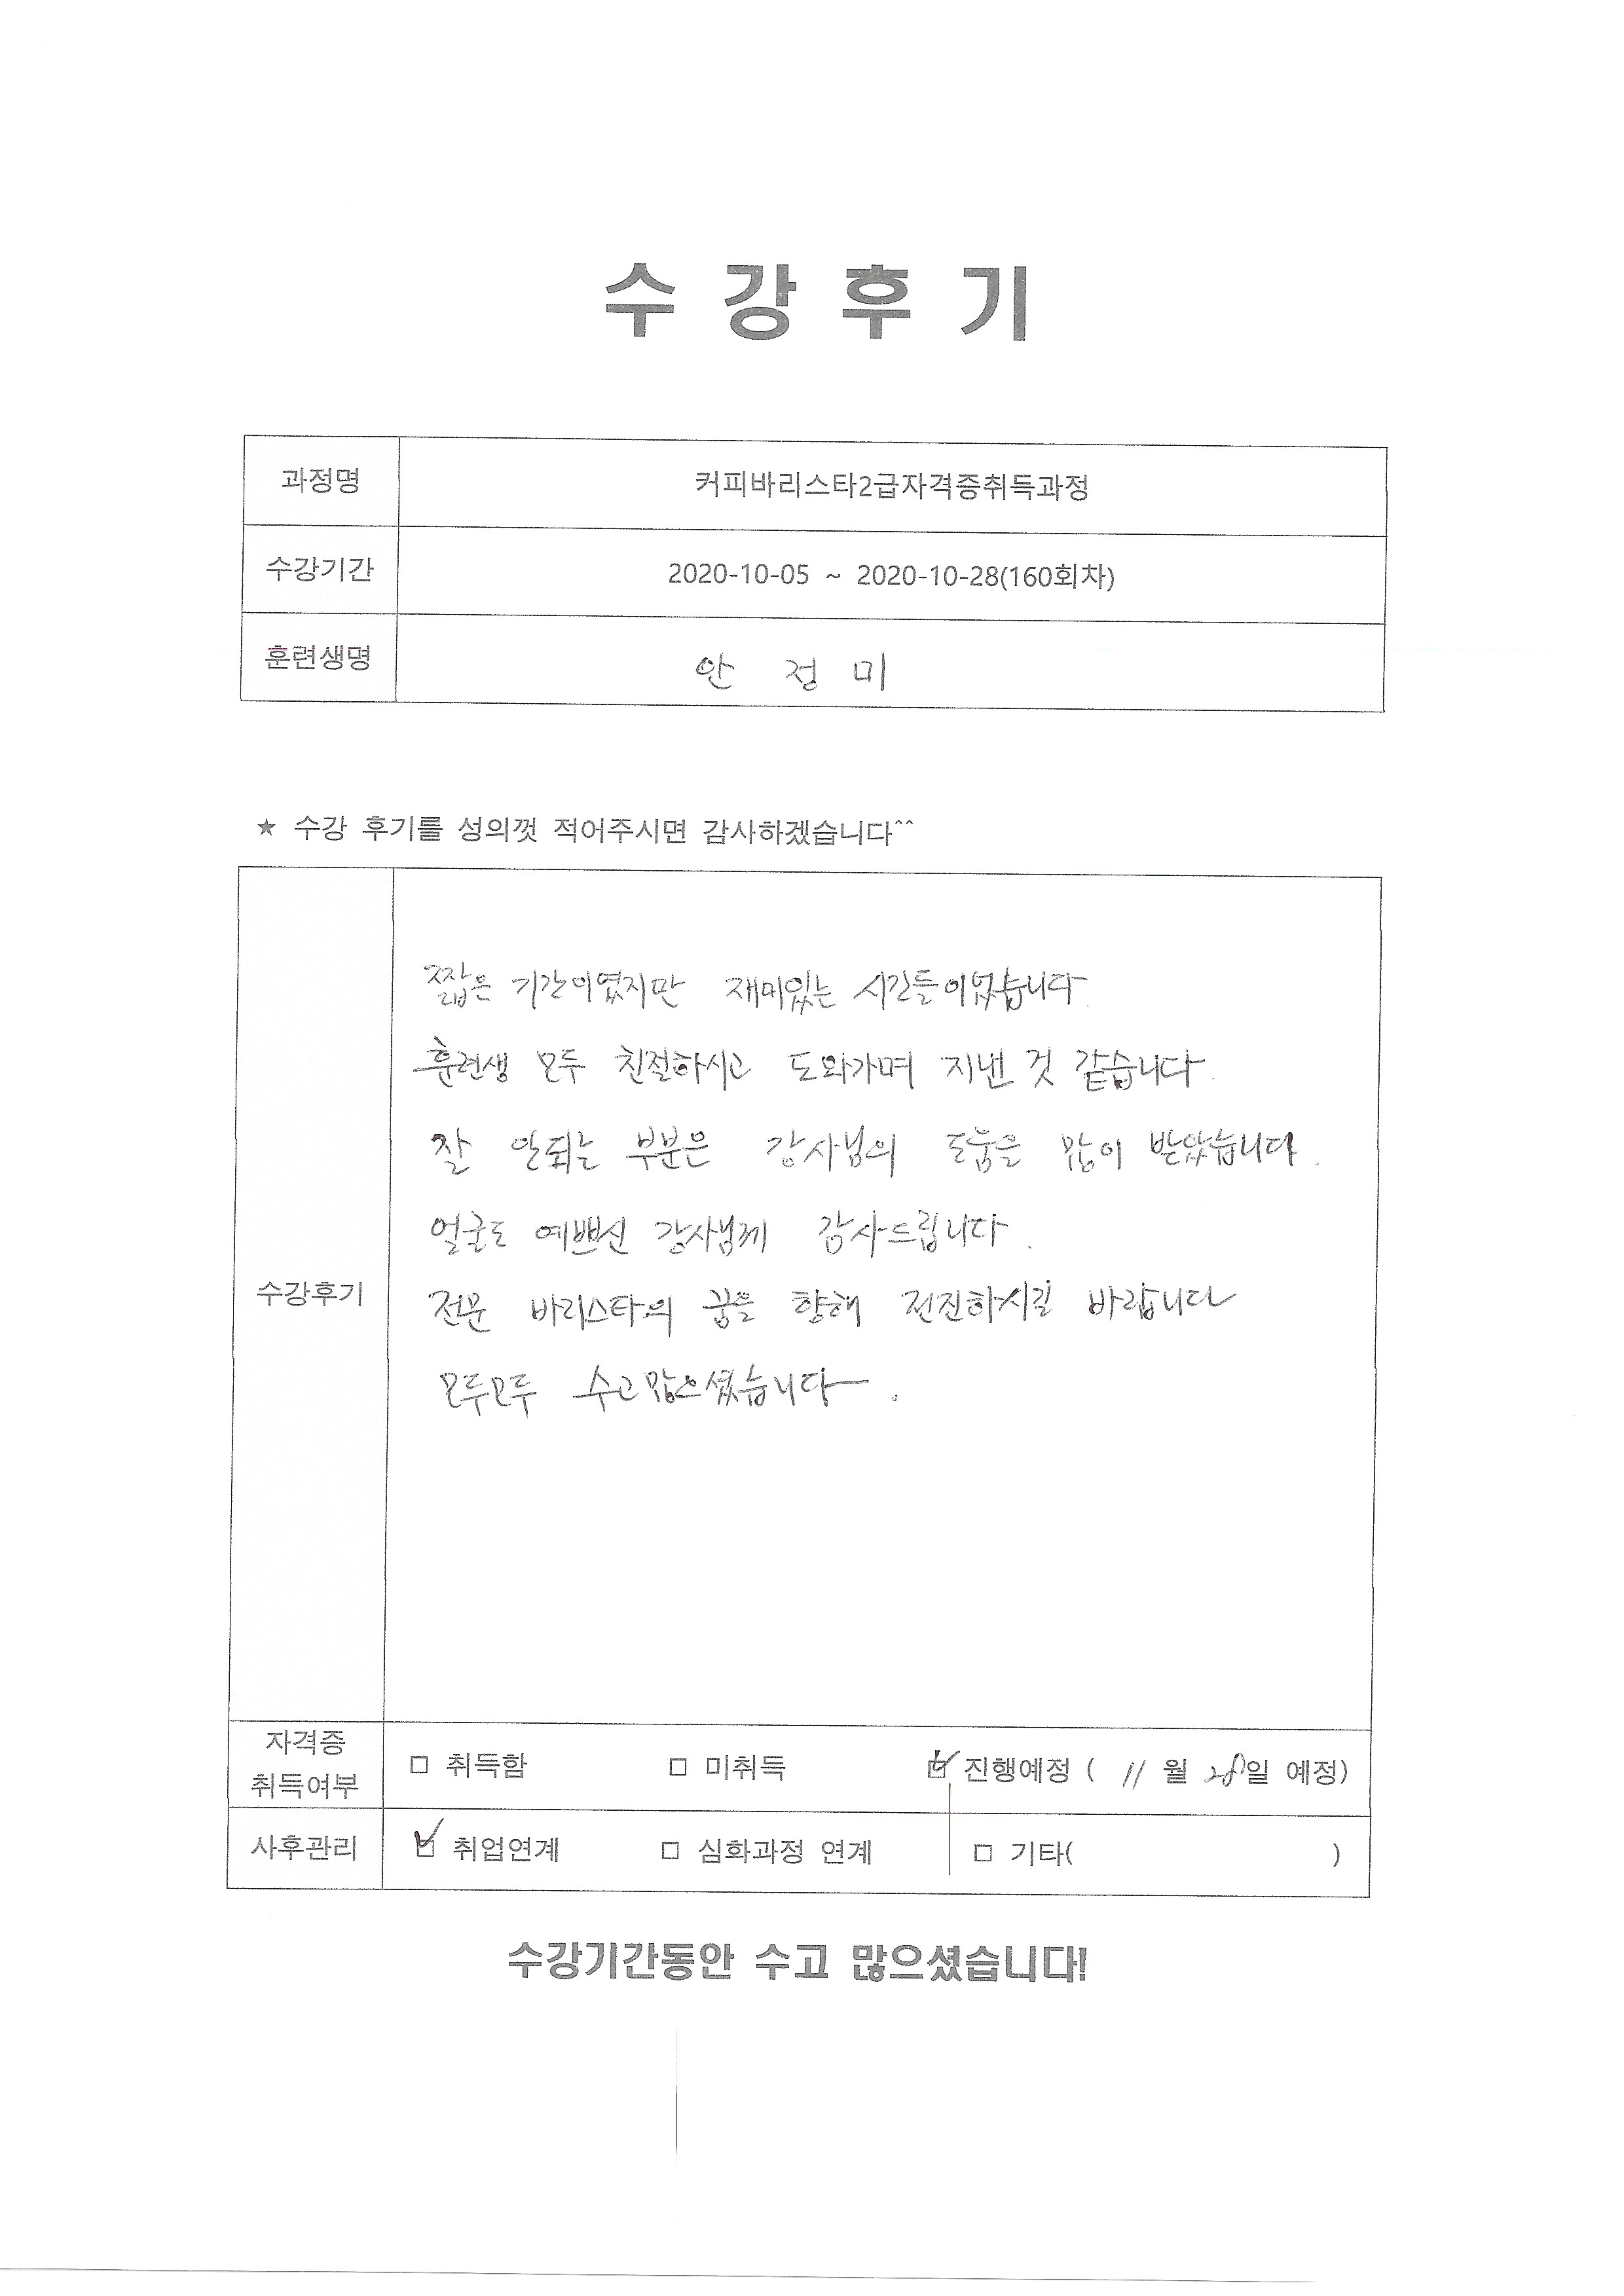 수 강 후 기
과정명 커피바리스타2급자격증취득과정
수강기간 2020-10-05 ~ 2020-10-28(160회차)
훈련생명 안 정 미
★ 수강 후기를 성의껏 적어주시면 감사하겠습니다^^
수강후기
짧은 기간이였지만 재미있는 시간들이었습니다
훈련생 모두 친절하시고 도와가며 지낸 것 같습니다.
잘 안되는 부분은 강사님의 도움을 많이 받았습니다.
얼굴도 예쁘신 강사님께 감사드립니다.
전문 바리스타의 꿈을 향해 전진하시길 바랍니다
모두모두 수고많으셨습니다.
자격증 취득여부 □ 취득함 □ 미취득 ☑ 진행예정 ( 11 월 28일 예정)
사후관리 ☑ 취업연계 □ 심화과정 연계 □ 기타( )
수강기간동안 수고 많으셨습니다!